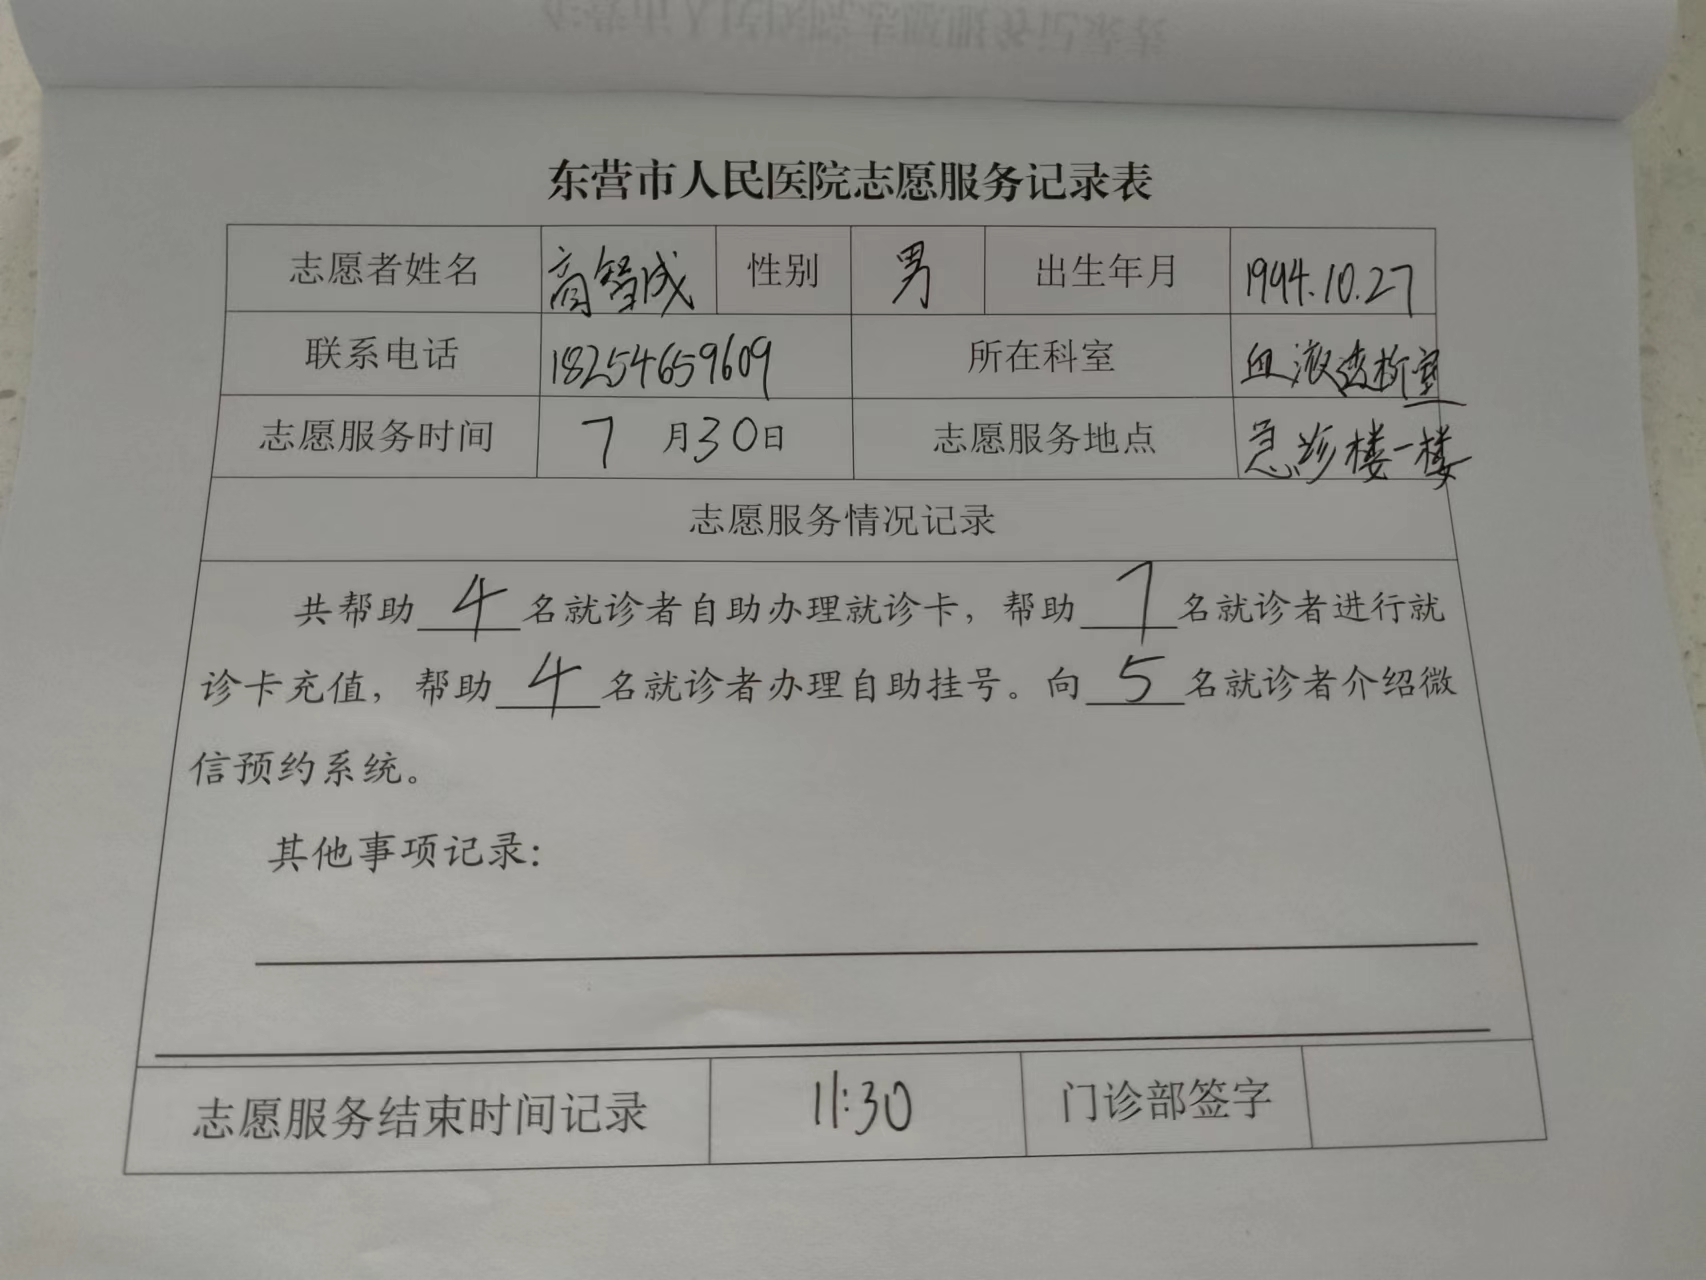 东营市人民医院志愿服务记录表
志愿者姓名 高智成 性别 男 出生年月 1994.10.27
联系电话 18254659609 所在科室 血液透析室
志愿服务时间 7月30日 志愿服务地点 急诊楼一楼
志愿服务情况记录
共帮助4名就诊者自助办理就诊卡，帮助7名就诊者进行就
诊卡充值，帮助4名就诊者办理自助挂号。向5名就诊者介绍微
信预约系统。
其他事项记录：
志愿服务结束时间记录 11:30 门诊部签字